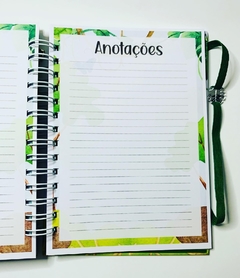 Anotações